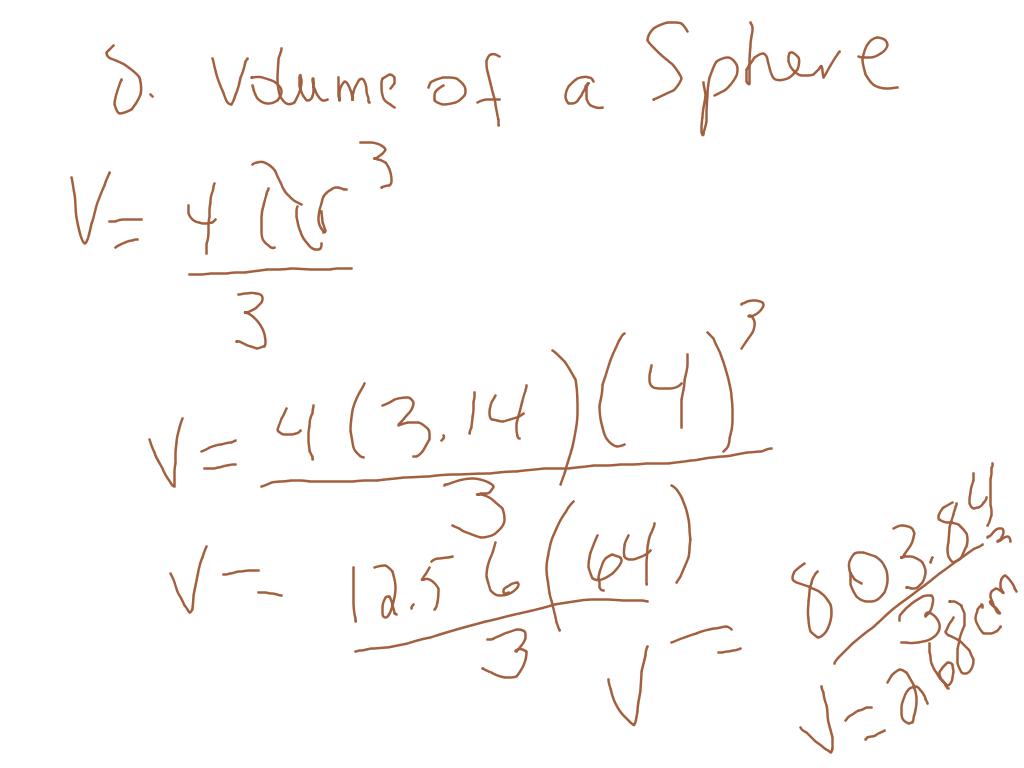 8. Volume of a Sphere
V= 4πr³
3
V= 4(3.14)(4)³
3
V= 12.56(64)
3
V= 803.84
3
V=268cm³